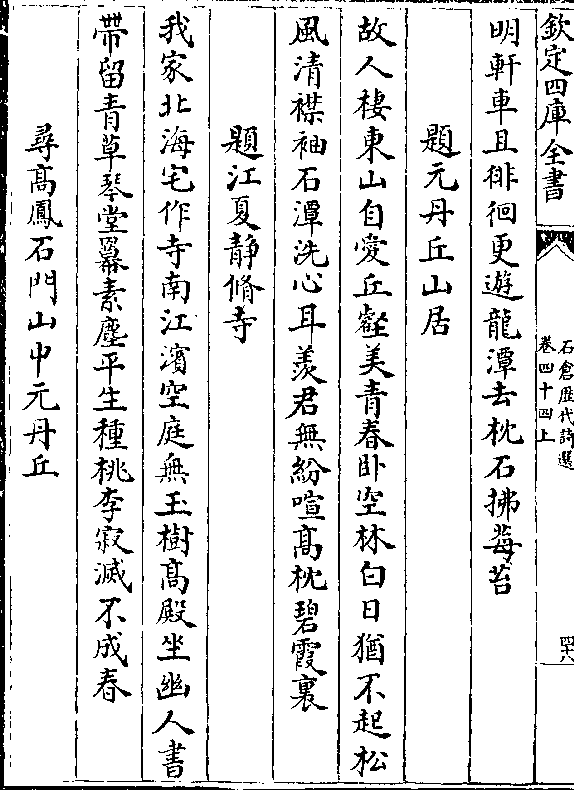 欽定四庫全書
石倉歷代詩選
卷四十四上
四十八
明軒車且徘徊更遊龍潭去枕石拂莓苔
題元丹丘山居
故人棲東山自愛丘壑美青春卧空林白日猶不起松
風清襟袖石潭洗心耳羨君無紛喧高枕碧霞裏
題江夏静脩寺
我家北海宅作寺南江濱空庭無玉樹高殿坐幽人書
帶留青草琴堂冪素塵平生種桃李寂滅不成春
尋高鳳石門山中元丹丘